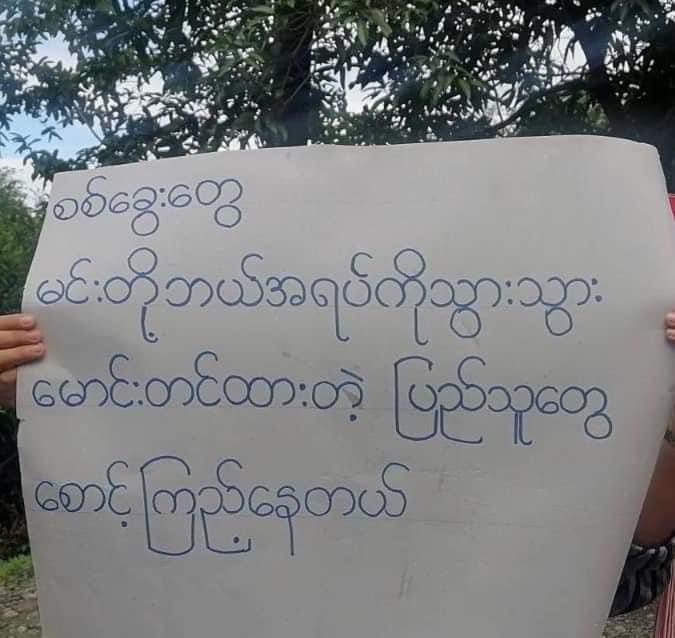 စစ်ခွေးတွေ
မင်းတို့ဘယ်အရပ်ကိုသွားသွား
မောင်းတင်ထားတဲ့ ပြည်သူတွေ
စောင့်ကြည့်နေတယ်